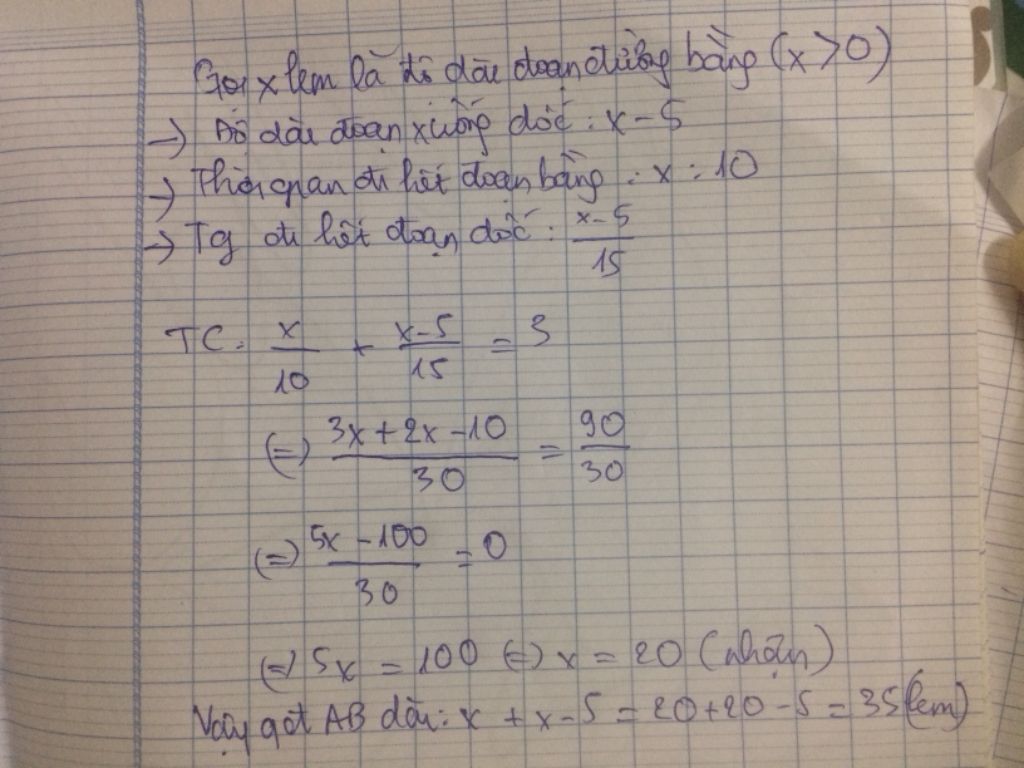 Gọi x km là độ dài đoạn đường bằng (x > 0)
→ Độ dài đoạn xuống dốc: x - 5
→ Thời gian đi hết đoạn bằng: x : 10
→ Tg đi hết đoạn dốc: \frac{x-5}{15}
TC: \frac{x}{10} + \frac{x-5}{15} = 3
(=) \frac{3x+2x-10}{30} = \frac{90}{30}
(=) \frac{5x-100}{30} = 0
(=) 5x = 100 (=) x = 20 (nhận)
Vậy qđt AB dài: x + x - 5 = 20+20 - 5 = 35 (km)